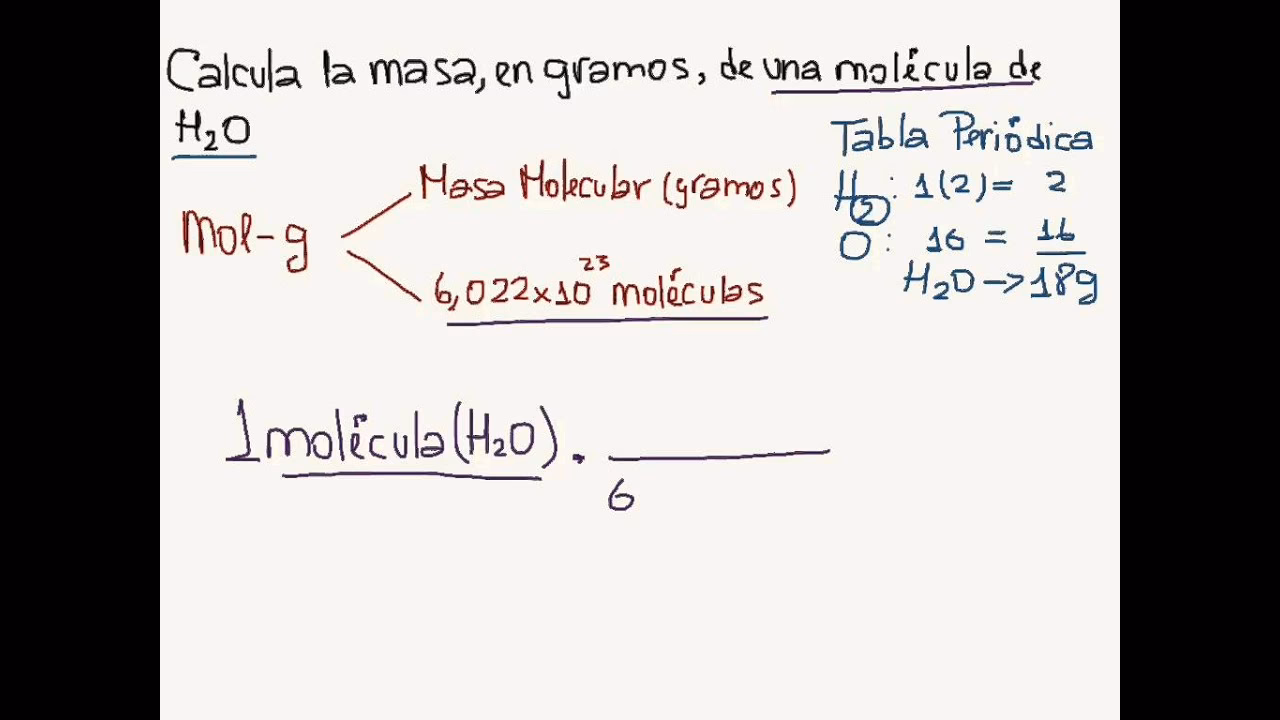 Calcula la masa, en gramos, de una molécula de
H₂O
Tabla Periódica
H₂ : 1(2) = 2
O : 16 = 16
H₂O → 18g
Mol-g
Masa Molecular (gramos)
6,022x10²³ moléculas
1 molécula (H₂O) .
6